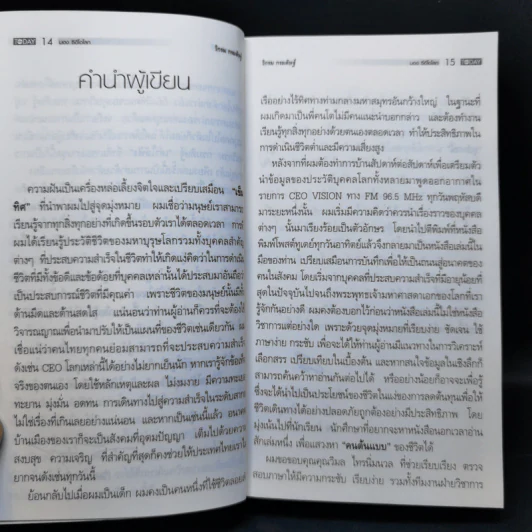 TODAY 14
คำนำผู้เขียน
ความฝันเป็นเครื่องหล่อเลี้ยงจิตใจและเปรียบเสมือน "เข็ม
ทิศ" ที่นำพาผมไปสู่จุดมุ่งหมาย ผมเชื่อว่ามนุษย์เราสามารถ
เรียนรู้จากทุกสิ่งทุกอย่างที่เกิดขึ้นรอบตัวเราได้ตลอดเวลา การที่
ผมได้เรียนรู้ประวัติชีวิตของมหาบุรุษโลกรวมทั้งบุคคลสำคัญ
ต่างๆ ที่ประสบความสำเร็จในชีวิตทำให้เกิดแง่คิดว่าในการดำเนิน
ชีวิตที่มีทั้งข้อดีและข้อด้อยที่บุคคลเหล่านั้นได้ประสบมาอันถือได้
เป็นประสบการณ์ชีวิตที่มีคุณค่า เพราะชีวิตของมนุษย์นั้นมีทั้ง
ด้านมืดและด้านสดใส แน่นอนว่าท่านผู้อ่านก็ควรที่จะต้องใช้
วิจารณญาณเพื่อนำมาปรับใช้เป็นแผนที่ของชีวิตเช่นเดียวกัน ผม
เชื่อแน่ว่าคนไทยทุกคนย่อมสามารถที่จะประสบความสำเร็จ
ดังเช่น CEO โลกเหล่านี้ได้อย่างไม่ยากเย็นนัก หากเรารู้จักข้อเท็จ
จริงของตนเอง โดยใช้หลักเหตุและผล ไม่งมงาย มีความทะเยอ
ทะยาน มุ่งมั่น อดทน การเดินทางไปสู่ความสำเร็จในระดับสากล
ไม่ใช่เรื่องที่เกินเลยอย่างแน่นอน และหากเป็นเช่นนี้แล้ว อนาคต
บ้านเมืองของเราก็จะเป็นสังคมที่อุดมปัญญา เต็มไปด้วยความ
สงบสุข ความเจริญ ที่สำคัญที่สุดก็คงช่วยให้ประเทศไทยเราไม่
ยากจนดังเช่นทุกวันนี้
ย้อนกลับไปเมื่อผมเป็นเด็ก ผมคงเป็นคนหนึ่งที่ใช้ชีวิตลอยคอ
15 TODAY
เรืออย่างไร้ทิศทางท่ามกลางมหาสมุทรอันกว้างใหญ่ ในฐานะที่
ผมเกิดมาเป็นพี่คนโตไม่มีคนแนะนำบอกกล่าว และต้องทำงาน
เรียนรู้ทุกสิ่งทุกอย่างด้วยตนเองตลอดเวลา ทำให้ประสิทธิภาพใน
การดำเนินชีวิตต่ำและมีความเสี่ยงสูง
หลังจากที่ผมต้องทำการบ้านสัปดาห์ต่อสัปดาห์เพื่อเตรียมตัว
นำข้อมูลของประวัติบุคคลโลกทั้งหลายมาพูดออกอากาศใน
รายการ CEO VISION ทาง FM 96.5 MHz ทุกวันพฤหัสบดี
มาระยะหนึ่งนั้น ผมเริ่มมีความคิดว่าควรนำเรื่องราวของบุคคล
ต่างๆ นั้นมาเรียงร้อยเป็นตัวอักษร โดยนำไปตีพิมพ์ที่หนังสือ
พิมพ์โพสต์ทูเดย์ทุกวันอาทิตย์แล้วจึงกลายมาเป็นหนังสือเล่มนี้ใน
มือของท่าน เปรียบเสมือนการบันทึกเพื่อให้เป็นถนนสู่อนาคตของ
คนในสังคม โดยเริ่มจากบุคคลที่ประสบความสำเร็จที่มีอายุน้อยที่
สุดในปัจจุบันไปจนถึงพระพุทธเจ้ามหาศาสดาเอกของโลกที่เรา
รู้จักกันอย่างดี ผมคงต้องบอกไว้ก่อนว่าหนังสือเล่มนี้ไม่ใช่หนังสือ
วิชาการแต่อย่างใด เพราะด้วยจุดมุ่งหมายที่เรียบง่าย ชัดเจน ใช้
ภาษาง่าย กระชับ เพื่อจะได้ให้ท่านผู้อ่านมีแนวทางในการวิเคราะห์
เลือกสรร เปรียบเทียบในเบื้องต้น และหากสนใจข้อมูลในเชิงลึกก็
สามารถค้นคว้าหาอ่านกันต่อไปได้ หรืออย่างน้อยก็อาจจะเพื่อรู้
ซึ่งจะได้นำไปเป็นประโยชน์ของชีวิตในแง่ของการลดต้นทุนเพื่อให้
ชีวิตเดินทางได้อย่างปลอดภัยถูกต้องอย่างมีประสิทธิภาพ โดย
มุ่งเน้นไปที่นักเรียน นักศึกษาที่อยากจะหาหนังสือนอกเวลาอ่าน
สักเล่มหนึ่ง เพื่อแสวงหา "คนต้นแบบ" ของชีวิตได้
ผมขอขอบคุณคุณวิมล ไทรนิ่มนวล ที่ช่วยเรียบเรียง ตรวจ
สอบภาษาให้มีความกระชับ เรียบง่าย รวมทั้งทีมงานฝ่ายวิชาการ